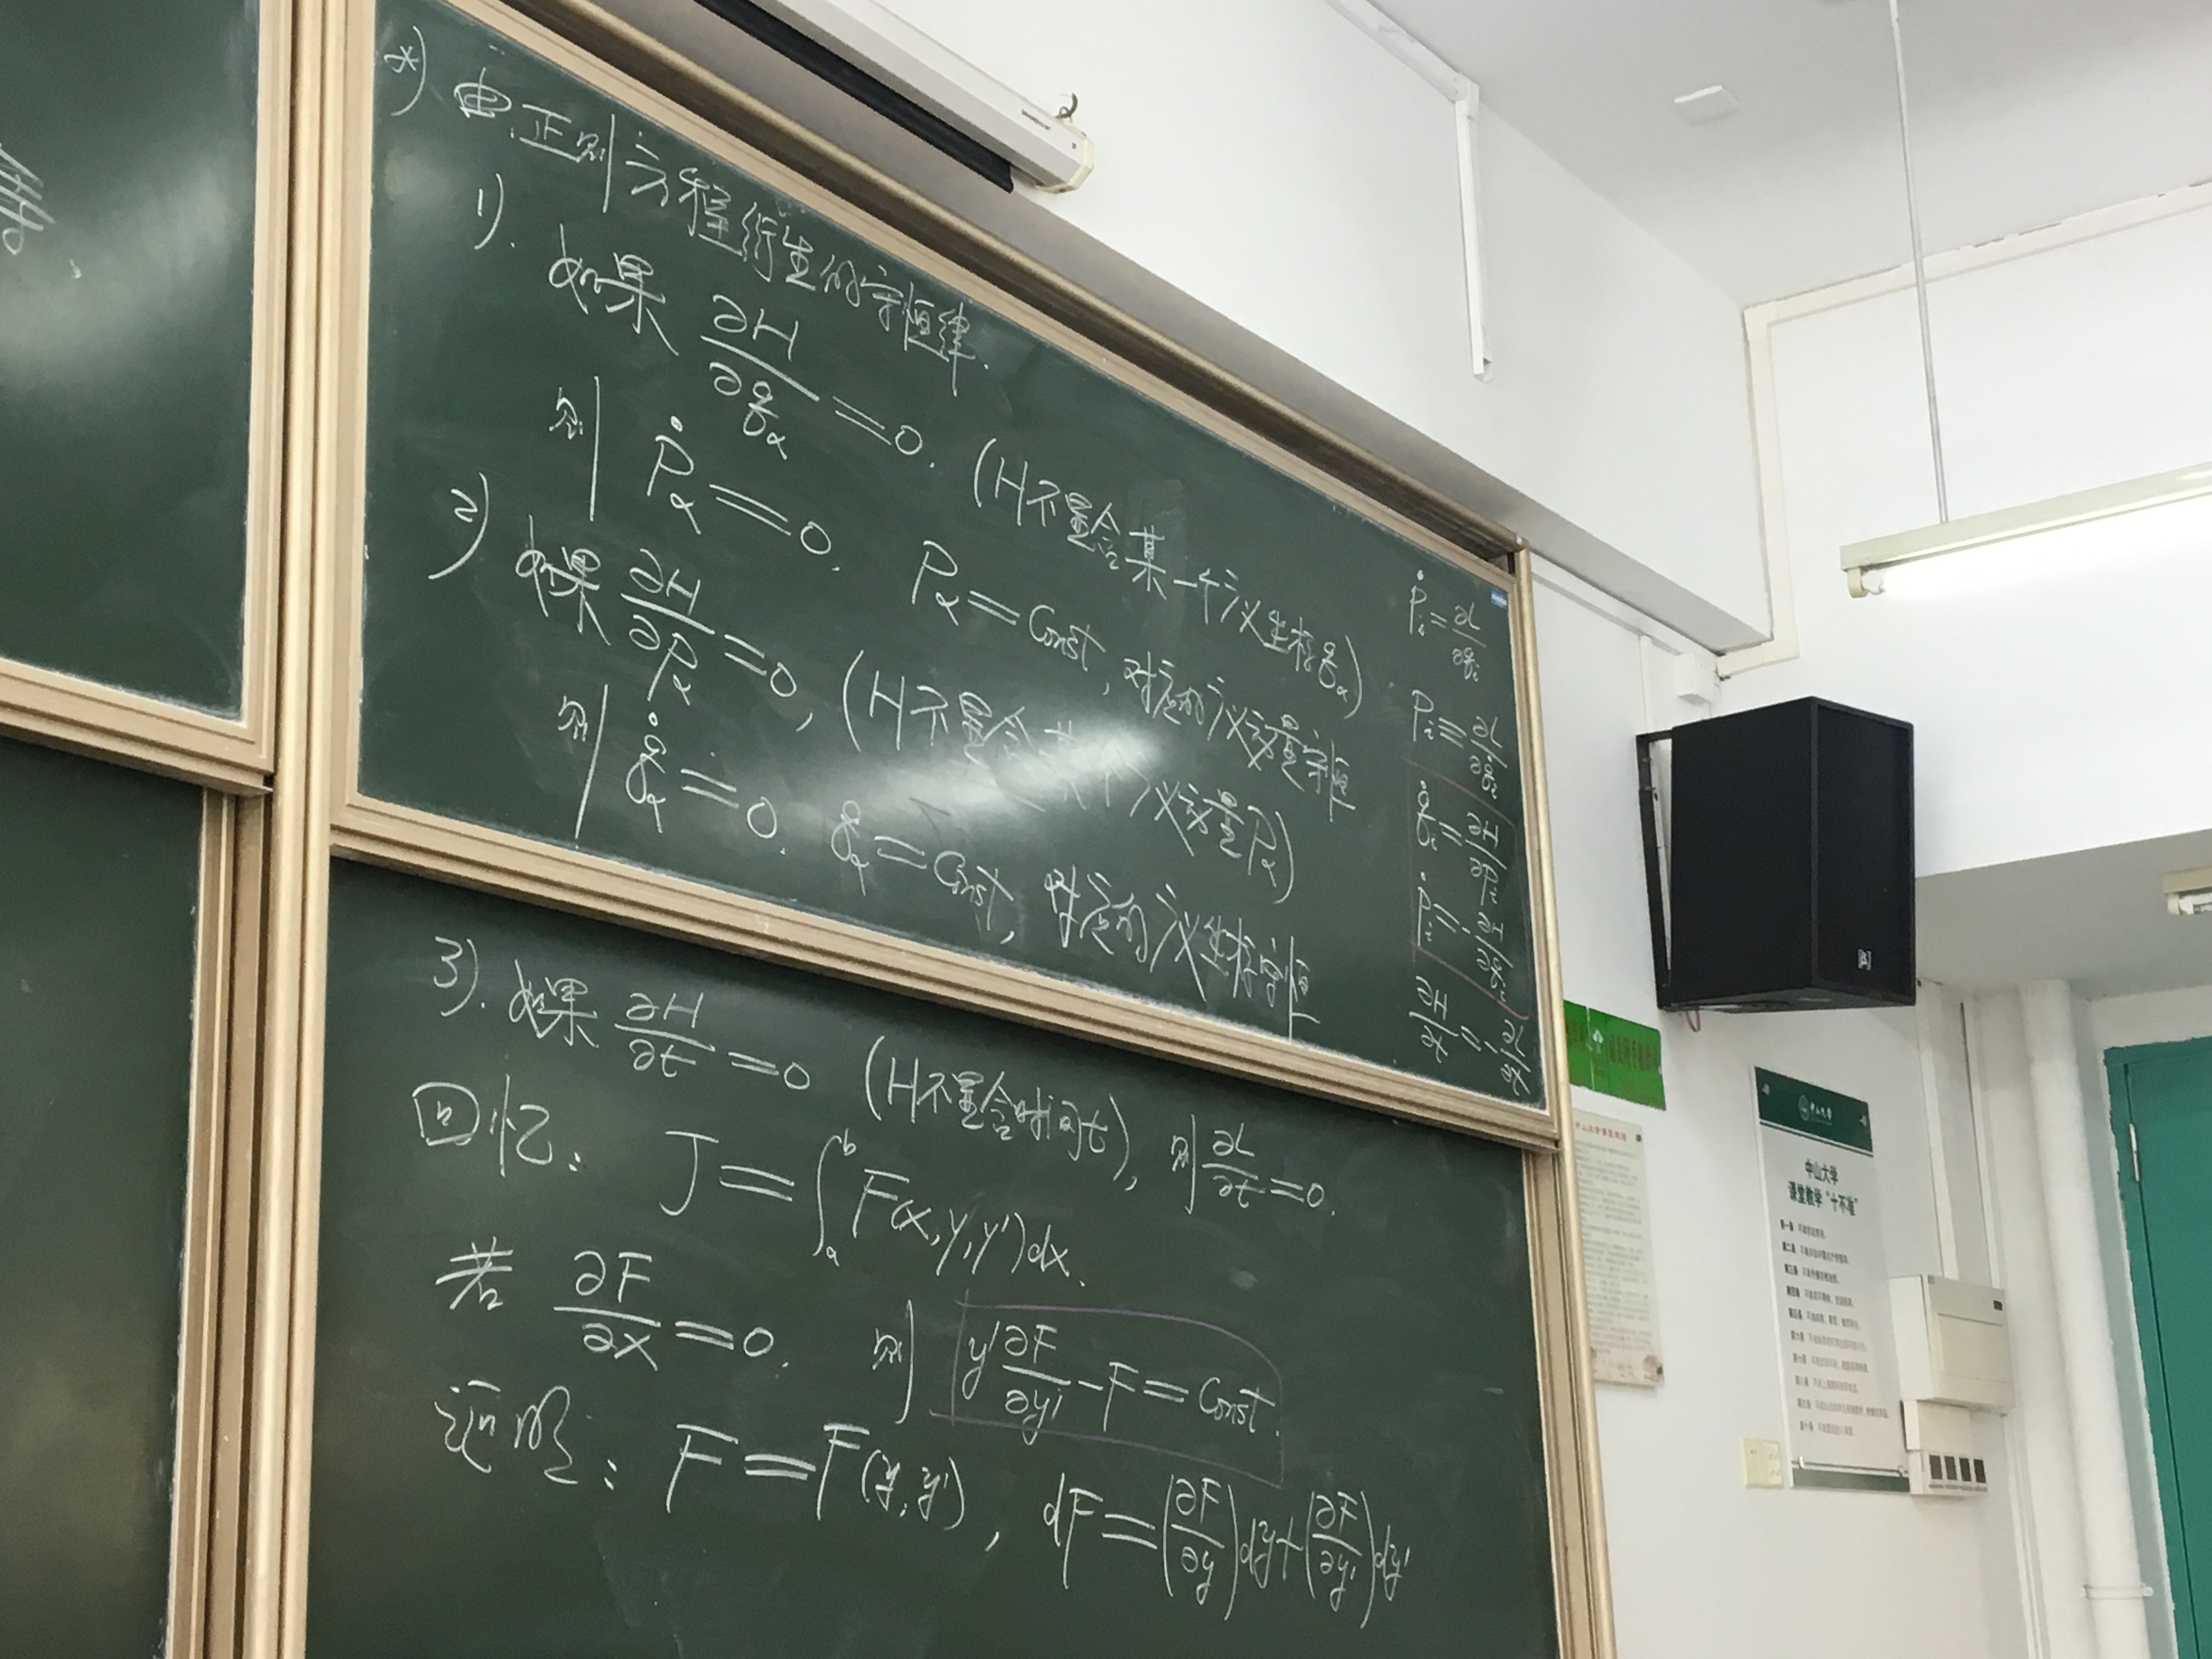 *) 由正则方程衍生的守恒律.
1). 如果 ∂H/∂qα = 0. (H不显含某一个广义坐标qα)
则 Ṗα = 0. Pα = Const, 对应的广义动量守恒
2) 如果 ∂H/∂Pα = 0, (H不显含某个广义动量Pα)
则 q̇α = 0. qα = Const, 对应的广义坐标守恒
Ṗi = ∂L/∂qi
Pi ≡ ∂L/∂q̇i
q̇i = ∂H/∂Pi
Ṗi = -∂H/∂qi
∂H/∂t = -∂L/∂t
3). 如果 ∂H/∂t = 0 (H不显含时间t), 则 ∂L/∂t = 0.
回忆: J = ∫ₐᵇ F(x,y,y')dx.
若 ∂F/∂x = 0. 则 y'∂F/∂y' - F = Const.
证明: F = F(y,y'), dF = (∂F/∂y)dy + (∂F/∂y')dy'
中山大学
中山大学
课堂教学“十不准”